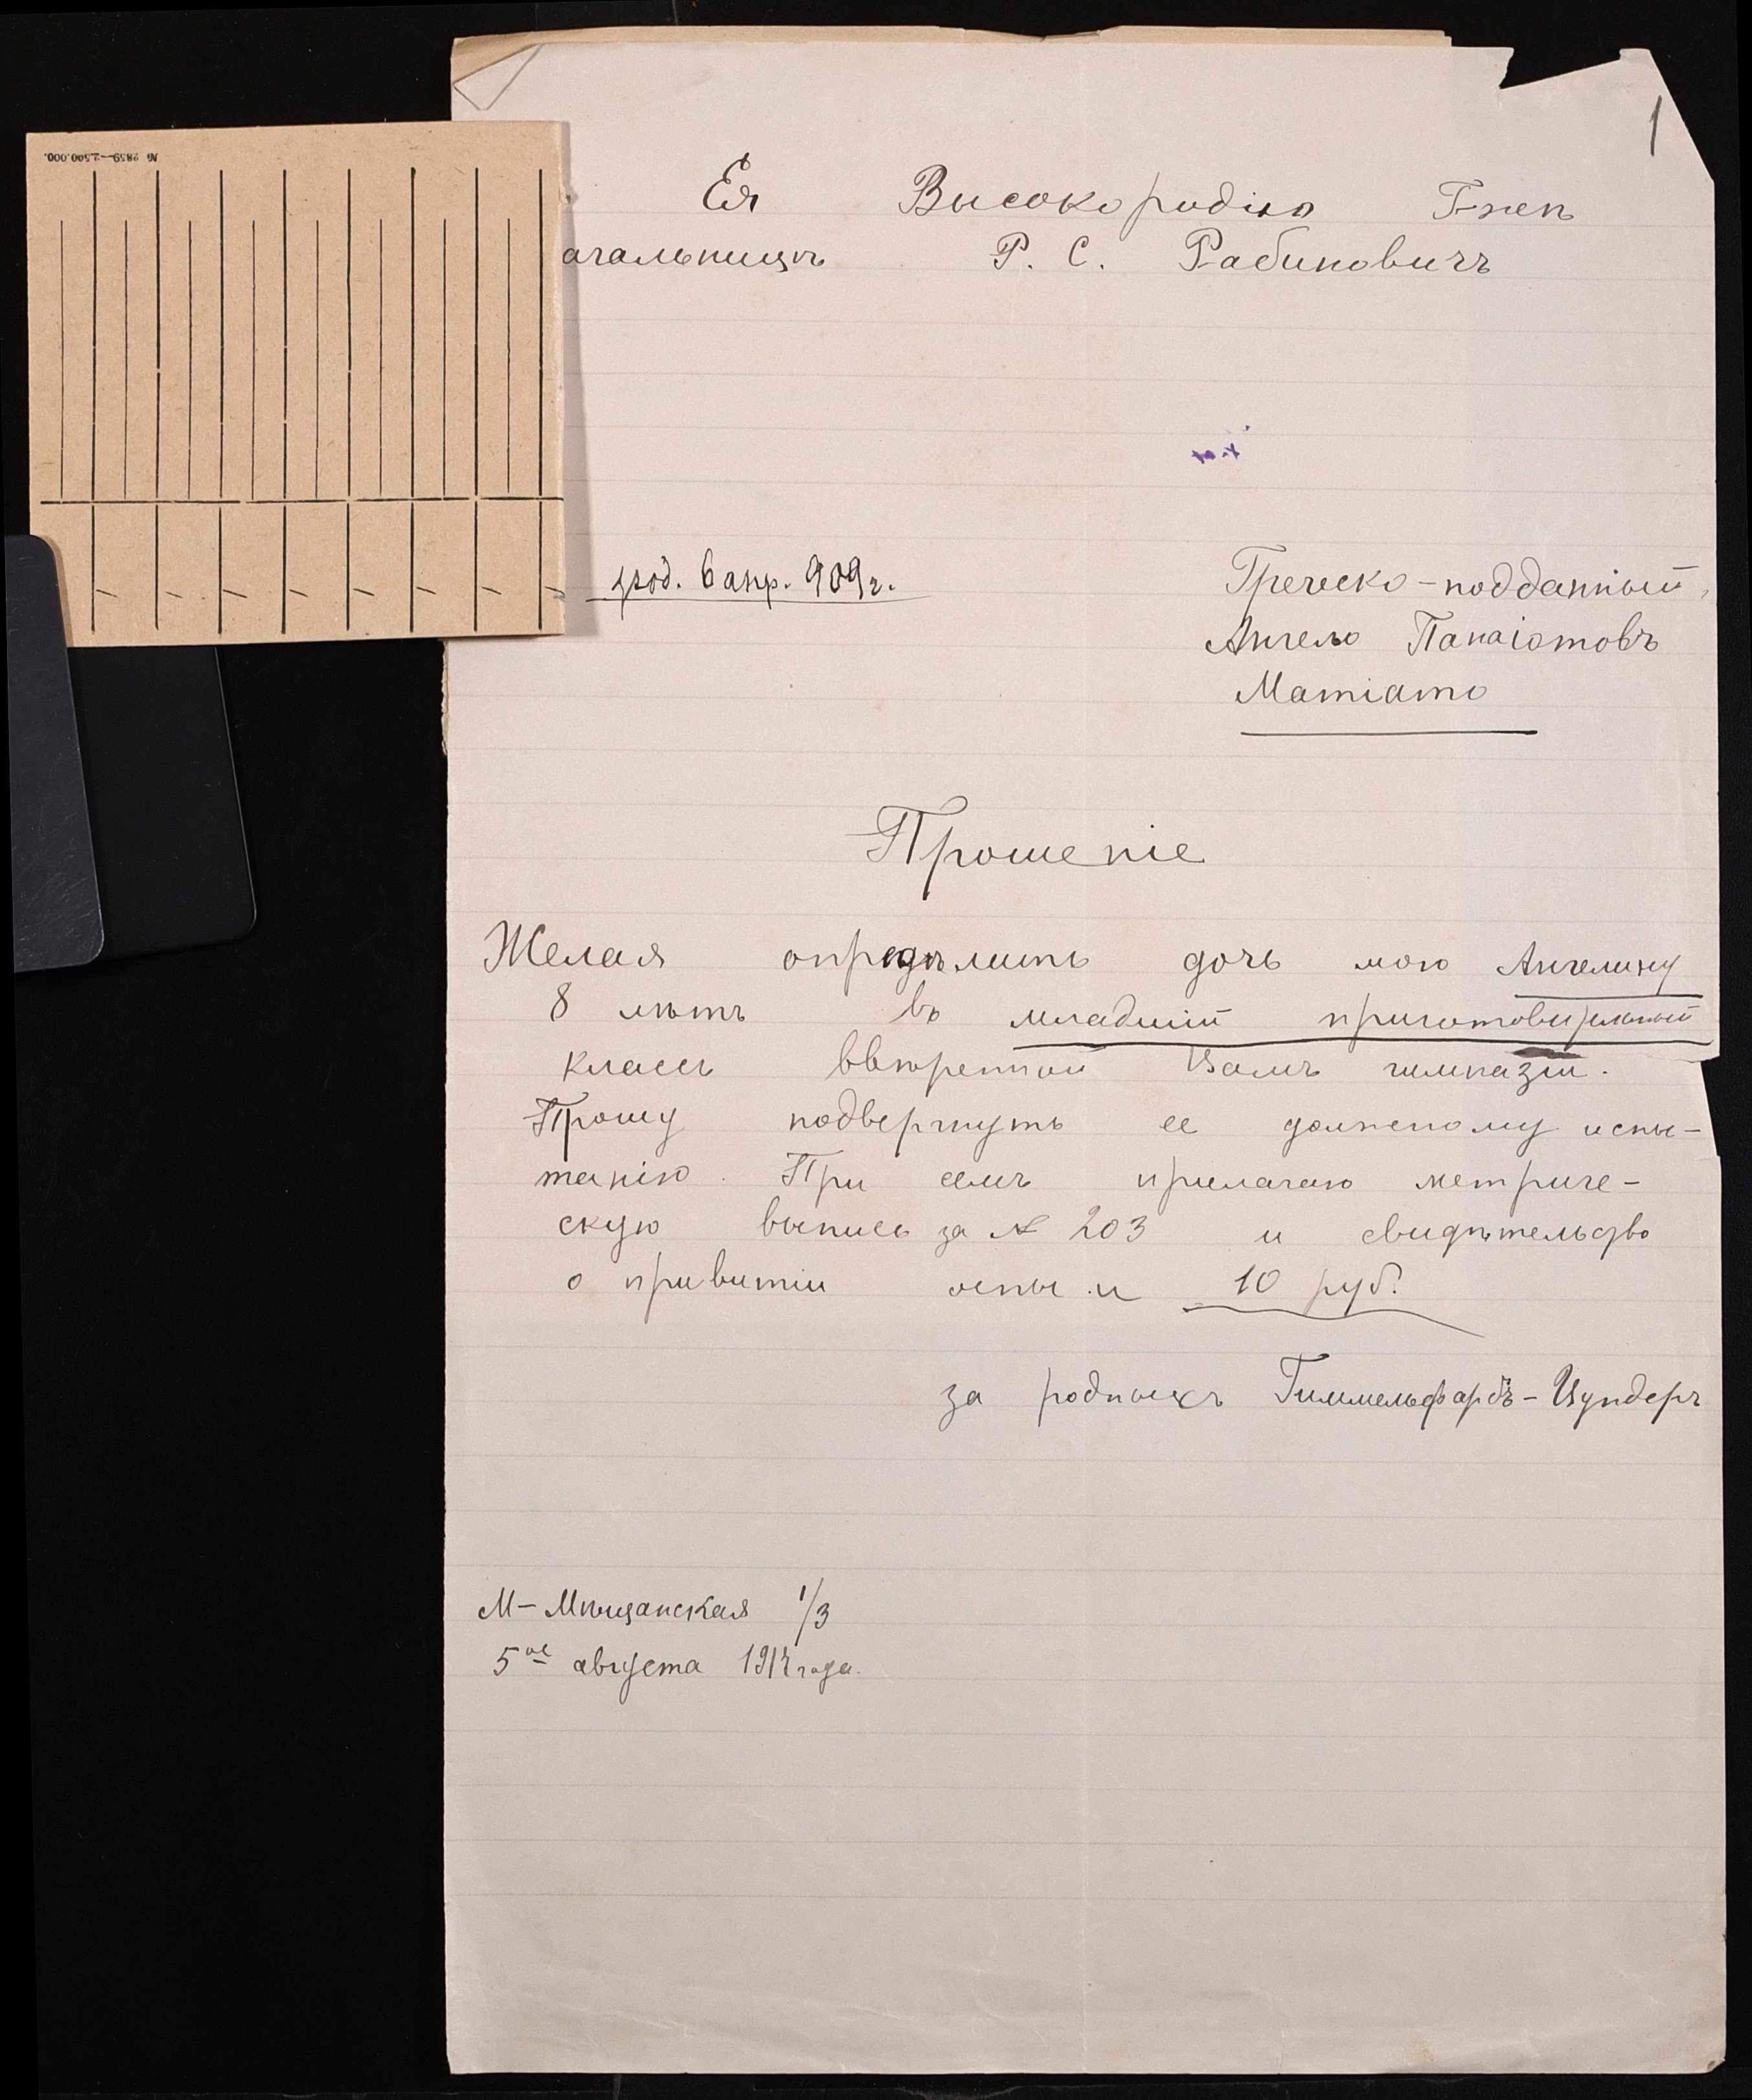 1
№ 2859—2.500.000.
Ея Высокородію Г-жѣ
ачальницѣ Р. С. Рабиновичъ
род. 6 апр. 909 г.
Греческо-подданный,
Ангело Панаіотовъ
Матіато
Прошеніе
Желая опредѣлить дочь мою Ангелину
8 лѣтъ въ младшій приготовительный
классъ ввѣренной Вамъ гимназіи.
Прошу подвергнуть ее должному испы-
танію. При семъ прилагаю метриче-
скую выпись за № 203 и свидѣтельство
о привитіи оспы и 10 руб.
за родныхъ Гиммельфарбъ-Цундеръ
М-Мѣщанская 1/3
5ое августа года.